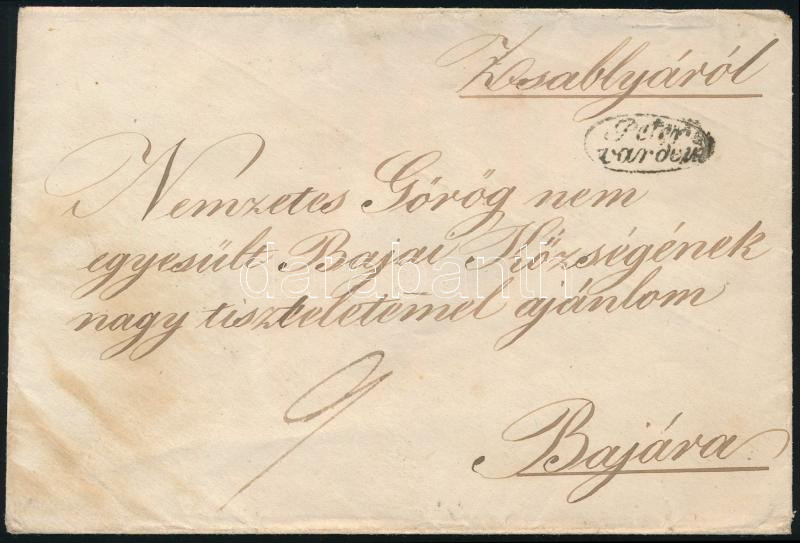 Zsablyáról
Peter
vardein
Nemzetes Görög nem
egyesült Bajai Községének
darabanth
nagy tiszteletemel ajánlom
9
Bajára